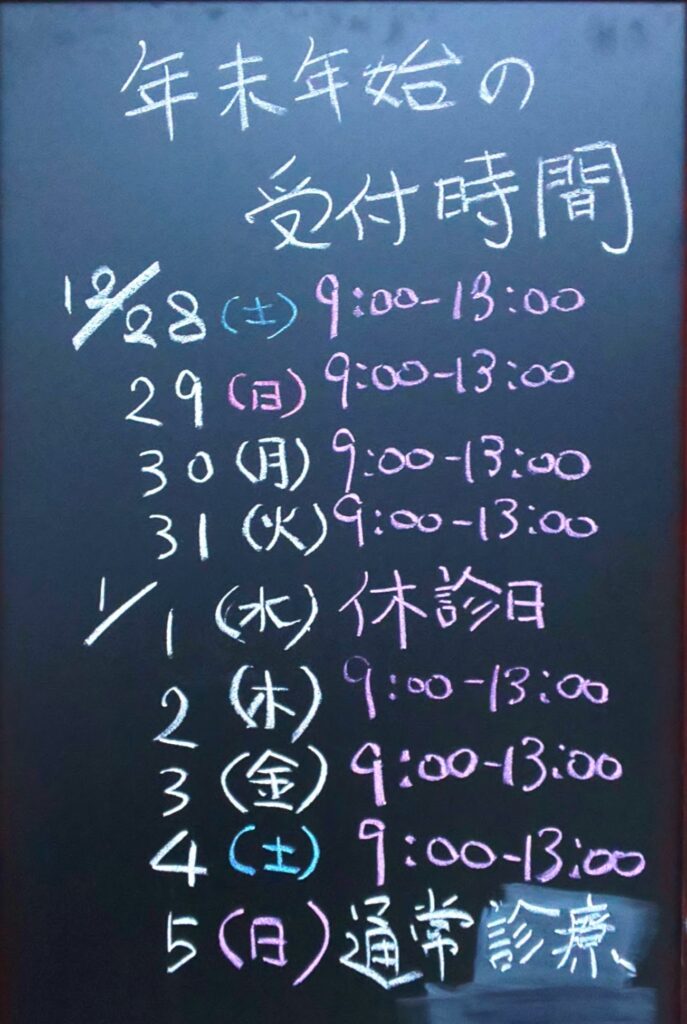 年末年始の
受付時間
12/28(土) 9:00-13:00
29(日) 9:00-13:00
30(月) 9:00-13:00
31(火) 9:00-13:00
1/1(水) 休診日
2(木) 9:00-13:00
3(金) 9:00-13:00
4(土) 9:00-13:00
5(日) 通常診療、